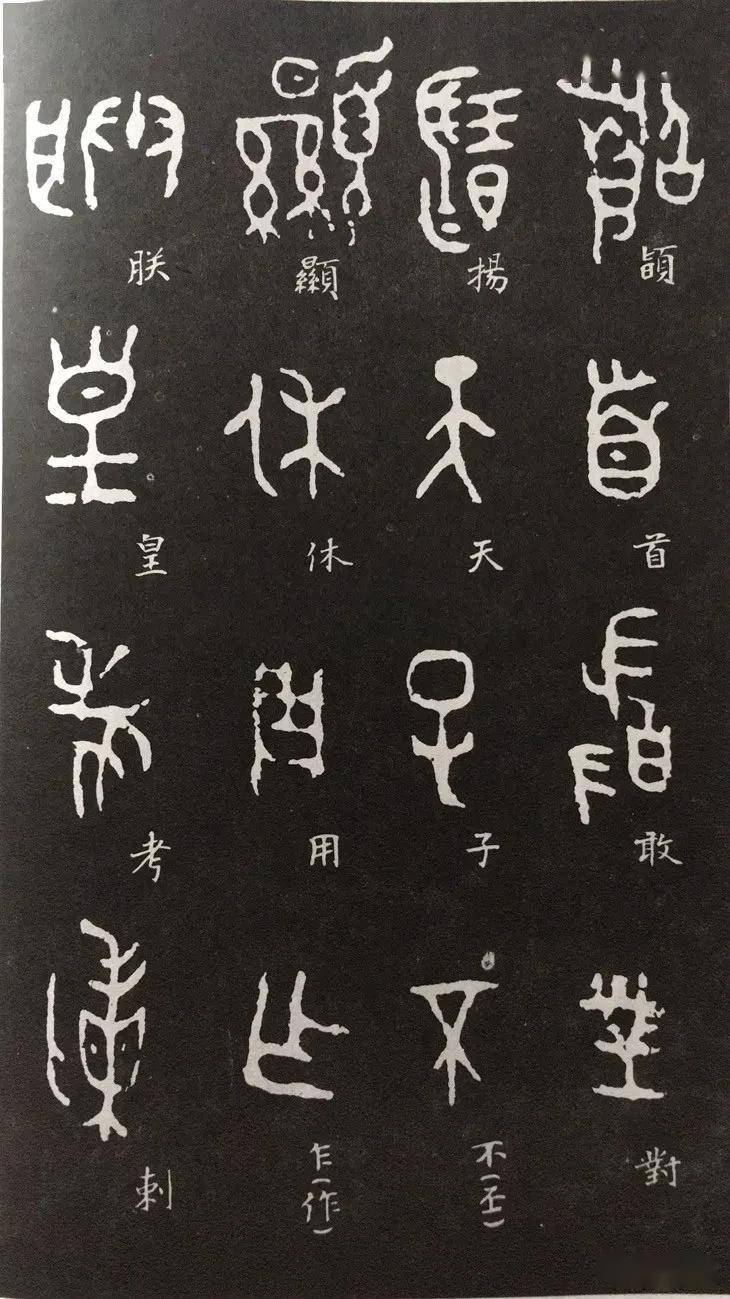 首敢對
揚天子不(丕)
顯休用乍(作)
朕皇考剌